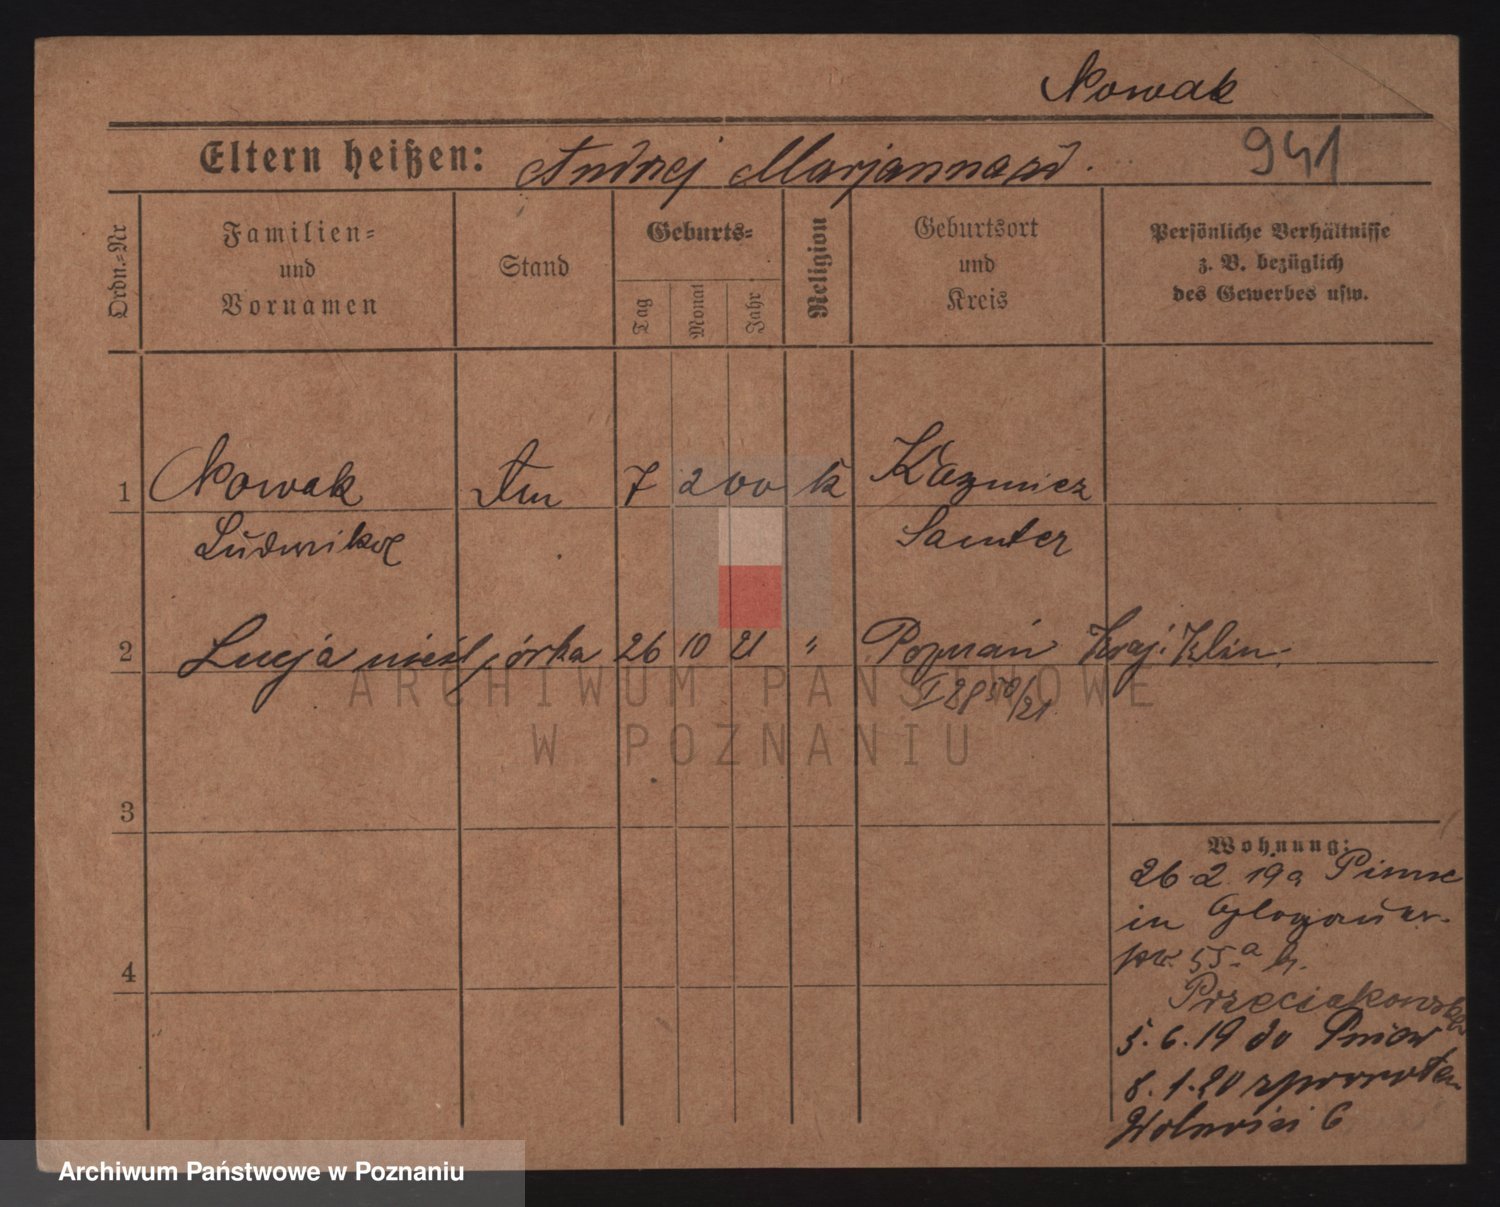 Nowak
Eltern heißen: Andrzej Marjanna
941
Ordn.-Nr
Familien- und Vornamen
Stand
Geburts-
Tag
Monat
Jahr
Religion
Geburtsort und Kreis
Persönliche Verhältnisse
z. B. bezüglich
des Gewerbes usw.
1 Nowak 7 2 00 k Kazmierz
Ludwika Samter
2 Lucja córka 26 10 21 " Poznań
3
4
Wohnung:
26.2.19 a Pinne
in Glogauer-
str. 55a b.
Przeciakowski
5.6.19 do Pniew
8.1.20 zpowrotem
6
ARCHIWUM PAŃSTWOWE
W POZNANIU
Archiwum Państwowe w Poznaniu